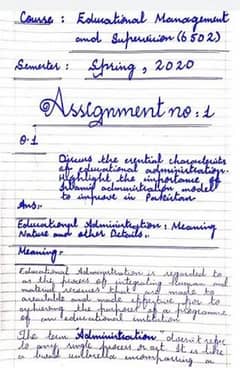 Course : Educational Management
and Supervision (6502)
Semester : Spring, 2020
Assignment no: 1
Q.1
Discuss the essential characterists
of educational administration.
Highlight the importance of
Islamic administration model
to improve in Pakistan
Ans:-
Educational Administration : Meaning
Nature and other Details:-
Meaning:-
Educational Administration is regarded to
as the process of integrating Human and
material resources that are made to
available and made effective for to
achieving the purposes of a programme
of an educational institution
The term Administration doesn't refer
to any single process or act. It is like
a broad umbrella encompassing a